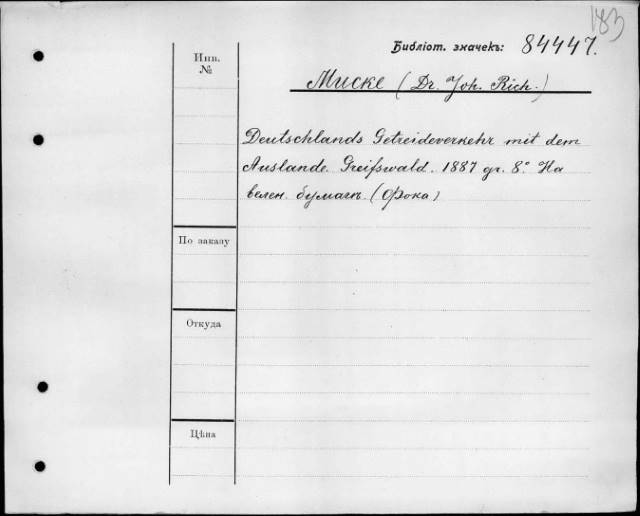 183
Библіот. значекъ: 84447.
Инв. №
Mucke (Dr. Joh. Rich.)
Deutschlands Getreideverkehr mit dem
Auslande. Greifswald. 1887 gr. 8° На
велен. бумагѣ. (Фока)
По заказу
Откуда
Цѣна